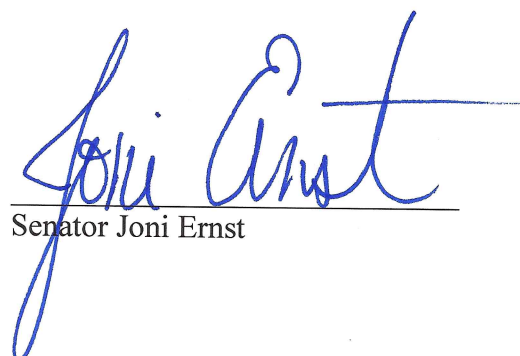 Joni Ernst
Senator Joni Ernst